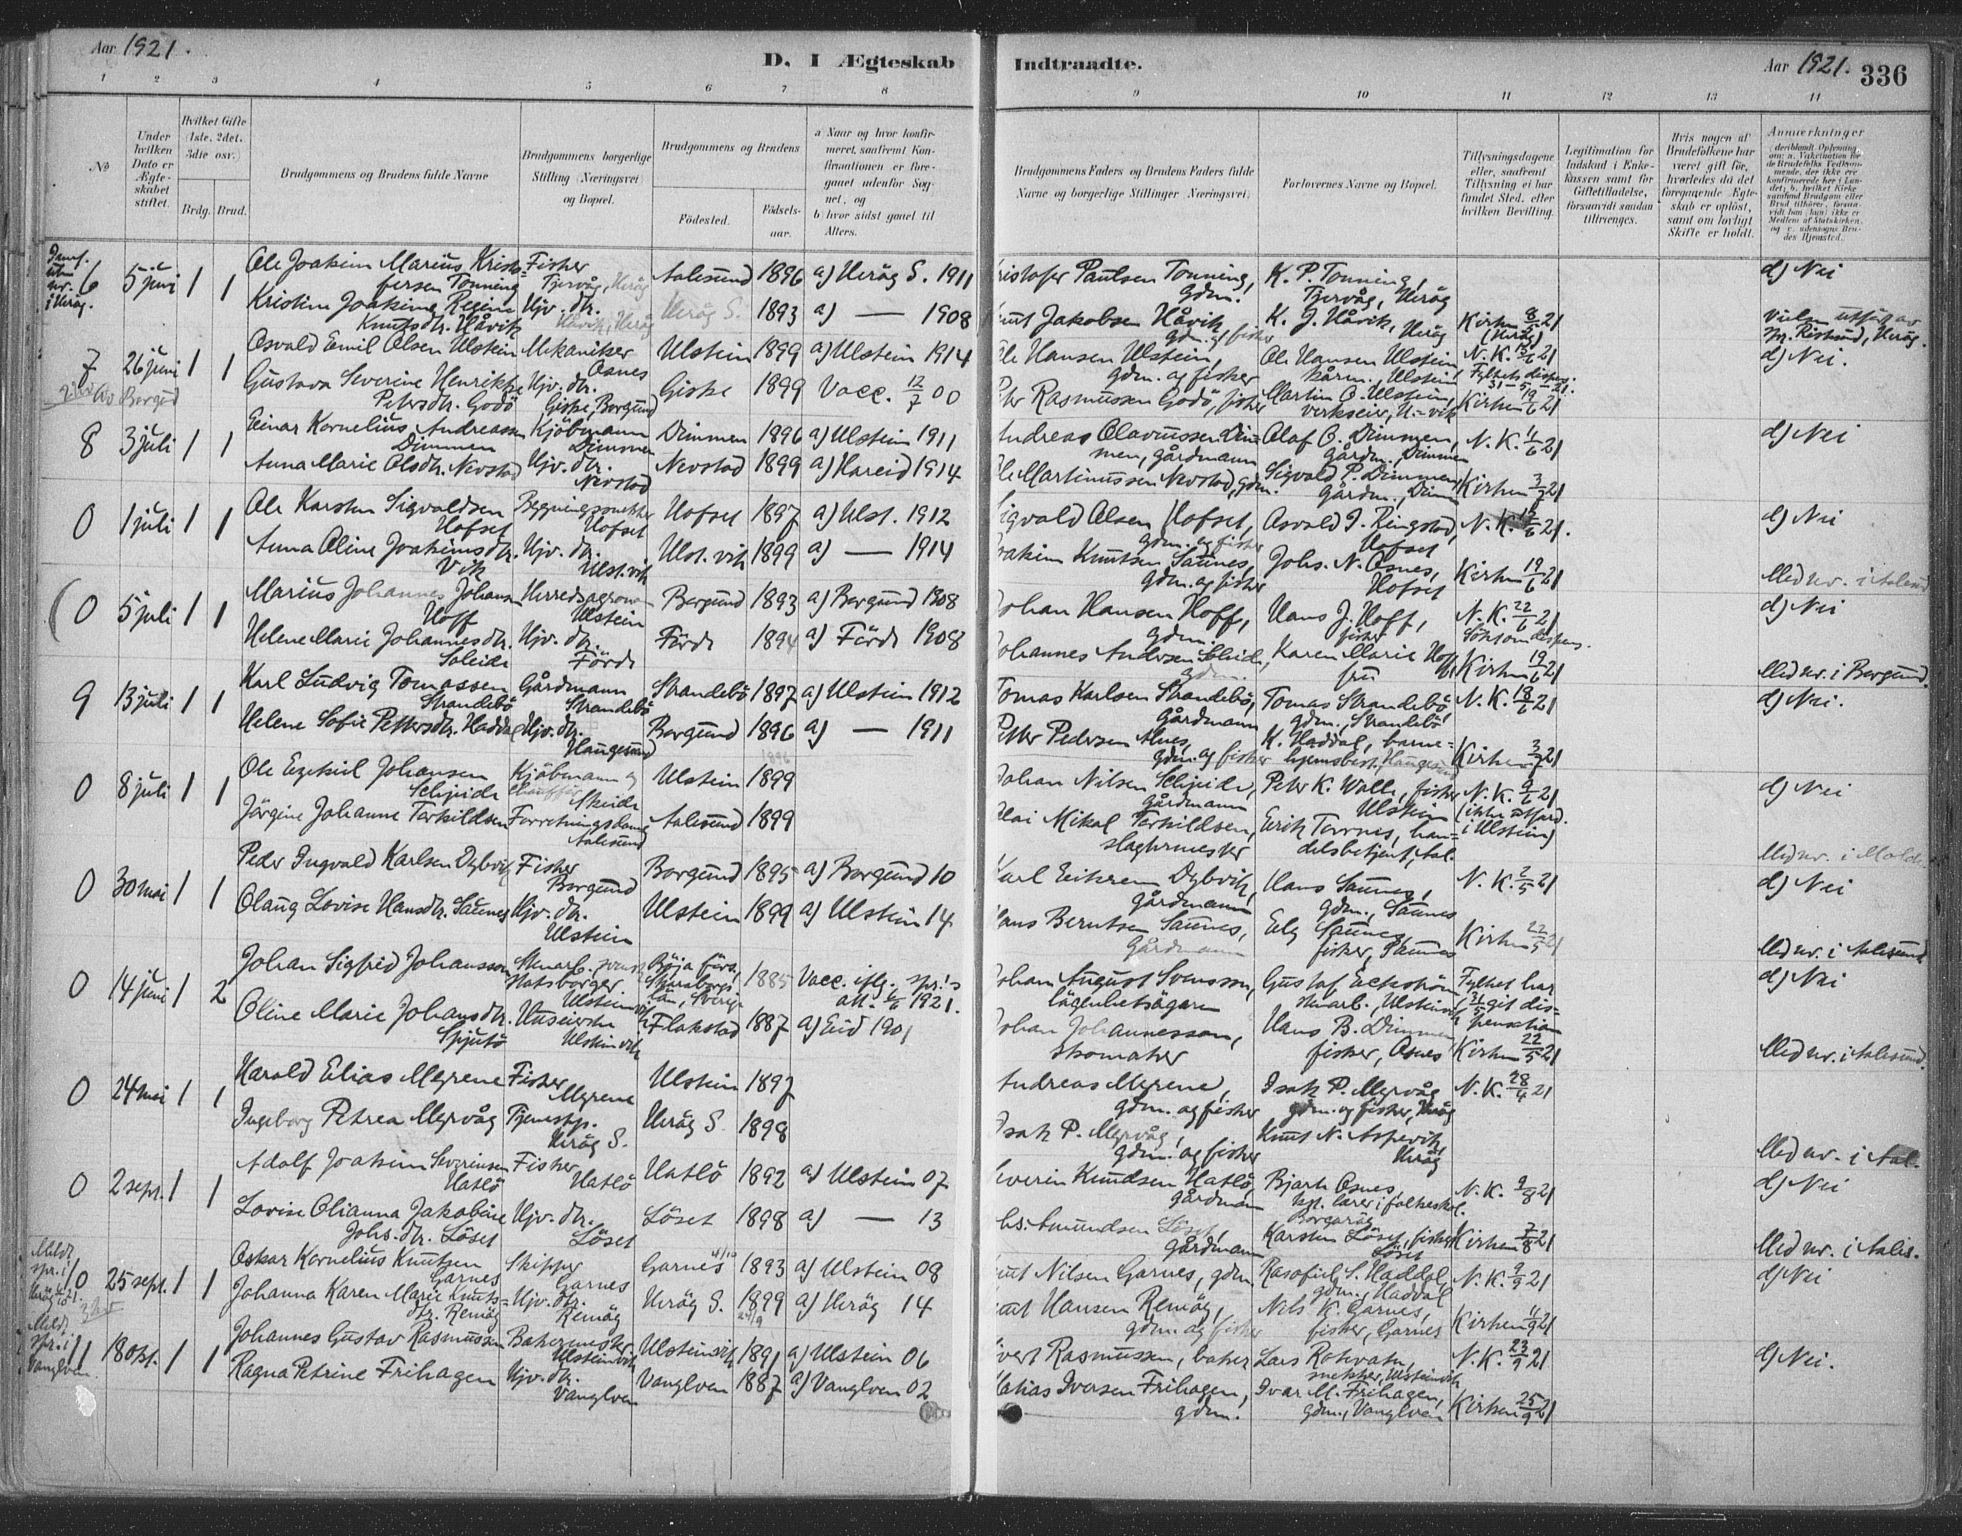 Aar 1921.
D. I Ægteskab Indtraadte.
Aar 1921.
336
1 2 3 4 5 6 7 8 9 10 11 12 13 14
No
Under hvilken Dato er Ægteskabet stiftet.
Hvilket Gifte (1ste, 2det, 3die osv.)
Brdg. Brud.
Brudgommens og Brudens fulde Navne
Brudgommens borgerlige Stilling (Næringsvei) og Bopæl.
Brudgommens og Brudens
Fødested. Fødselsaar.
a Naar og hvor konfirmeret, saafremt Konfirmationen er foregaaet udenfor Sognet, og
b hvor sidst gaaet til Alters.
Brudgommens Faders og Brudens Faders fulde Navne og borgerlige Stillinger (Næringsvei).
Forlovernes Navne og Bopæl.
Tillysningsdagene eller, saafremt Tillysning ei har fundet Sted, efter hvilken Bevilling.
Legitimation for Indskud i Enkekassen samt for Giftetilladelse, forsaavidt saadan tiltrænges.
Hvis nogen af Brudefolkene har været gift før, hvorledes da det foregaaende Ægteskab er opløst, samt om lovligt Skifte er holdt.
Anmærkninger
6 5 juni 1 1 Ole Joakim Marius Kristofersen Tonning Fisker Tjervåg, Herög Aalesund 1896 a) Heröy S. 1911 Kristofer Paulsen Tonning, gdm. K. P. Tonning, Tjervåg, Heröy d) Nei
Kristine Joakime Regine Knutsdtr. Håvik Hjv. dtr. Håvik, Heröy Heröy S. 1893 a) — 1908 Knut Jakobsen Håvik gdm. og fisker K. J. Håvik, Heröy Kirken 8/5 21 (Heröy)
7 26 juni 1 1 Osvald Emil Olsen Ulstein Mekaniker Osnes Ulstein 1899 a) Ulstein 1914 Ole Hansen Ulstein, gdm. og fisker Ole Hansen Ulstein N. K. 12/6 21 d) Nei.
Gustava Severine Henrikke Petersdtr. Godö Hjv. dtr. Giske, Borgund Giske 1899 Vacc. 12/7 00 Peter Rasmussen Godö, fisker Martin O. Ulstein, Kirken 19/6 21
8 3 juli 1 1 Einar Kornelius Andreassen Dimmen Kjöbmann Dimmen Dimmen 1896 a) Ulstein 1911 Andreas Olavussen Dimmen, gårdmann Olaf O. Dimmen, gårdm., Dimmen N. K. 11/6 21 d) Nei
Anna Marie Olsdtr. Nevstad Hjv. dtr. Nevstad Nevstad 1899 a) Hareid 1914 Ole Martinussen Nevstad, gdm. Sigvald P. Dimmen gårdm., Dimm. Kirken 3/7 21
0 1 juli 1 1 Ole Karsten Sigvaldsen Hofset Bygningssnekker Hofset Hofset 1897 a) Ulst. 1912 Sigvald Olsen Hofset, gdm. og fisker Osvald J. Ringstad, Hofset N. K. 12/6 21. d) Nei
Anna Oline Joakimsdtr. Vik Hjv. dtr. Ulst.vik Ulst. vik 1899 a) — 1914 Joakim Knutsen Saunes, gdm. og fisker Johs. N. Osnes, Hofset Kirken 19/6 21 Med nr. i Aalesund
0 5 juli 1 1 Marius Johannes Johansen Hoff Herredsagronom Ulstein Borgund 1893 a) Borgund 1908 Johan Hansen Hoff, gdm. Hans J. Hoff, fisker N. K. 22/6 21 d) Nei
Helene Marie Johannesdtr. Soleide Hjv. dtr. Förde Förde 1894 a) Förde 1908 Johannes Andersen Soleide, gdm. Karen Marie Hoff fru Kirken 19/6 21 Med nr. i Borgund.
9 13 juli 1 1 Karl Ludvig Tomassen Strandebö Gårdmann Strandebö Strandebö 1897 a) Ulstein 1912 Tomas Karlsen Strandebö, gårdmann Tomas Strandebö gdm., Strandebö N. K. 18/6 21 d) Nei.
Helene Sofie Pettersdtr. Haddal Hjv. dtr. Haugesund Borgund 1896 a) — 1911 Petter Pedersen Alnes, gdm. og fisker K. Haddal, barnehjemsbest., Haugesund Kirken 3/7 21
0 8 juli 1 1 Ole Ezekiel Johansen Schjeide Kjöbmann og chaufför Skeide Ulstein 1899 Johan Nilsen Schjeide, gårdmann Peter K. Walle, fisker Ulstein N. K. 9/6 21 (ikke utford. i Ulstein) d) Nei
Jörgine Johanne Torkildsen Forretningsdame Aalesund Aalesund 1899 Olai Mikal Torkildsen, slagtermester Erik Torrnes, handelsbetjent, Aal. Med nr. i Molde.
0 30 mai 1 1 Peder Ingvald Karlsen Dybvik Fisker Borgund Borgund 1895 a) Borgund 10 Karl Eikrem Dybvik, gårdmann Hans Saunes, gdm., Saunes N. K. 2/5 21 d) Nei
Olaug Lovise Hansdtr. Saunes Hjv. dtr. Ulstein Ulstein 1899 a) Ulstein 14 Hans Berntsen Saunes, gårdmann Elg Saunes, fisker, Saunes Kirken 22/5 21 Med nr. i Aalesund
0 14 juni 1 2 Johan Sigfrid Johansson Stenarb. svensk Statsborger Ulsteinvik 1885 Vacc. iflg. spr.'s att. 1921. Johan August Svensson, lägenhetsägare Gustaf Eckström stenarb., Ulsteinvik Fylket har git dispensation d) Nei
Oline Marie Johansdtr. Sjutö Husejerske Ulsteinvik Flakstad 1887 a) Eid 1901 Johan Johannesson, skomaker Hans B. Dimmen fisker, Osnes Kirken 22/5 21 Med nr. i Aalesund.
0 24 mai 1 1 Harold Elias Myrene Fisker Myrene Ulstein 1897 Andreas Myrene, gdm. og fisker Isak P. Myrvåg gdm. og fisker, Heröy N. K. 28/4 21
Ingeborg Petrea Myrvåg Tjenestep. Heröy S. Heröy S. 1898 Isak P. Myrvåg, gdm. og fisker Knut N. Aspevik Heröy Med nr. i Aal.
0 2 sept. 1 1 Adolf Joakim Severinsen Hatlö Fisker Hatlö Hatlö 1892 a) Ulstein 07 Severin Knudsen Hatlö, gårdman Bjarne Osnes, lærer i folkeskol. Borgaröy N. K. 9/8 21 d) Nei
Lovise Olianna Jakobine Johs. dtr. Löset Hjv. dtr. Löset Löset 1898 a) — 13 Johs. Amundsen Löset, gårdmann Karsten Löset, fisker Löset Kirken 7/8 21 Med nr. i Aales.
10 25 sept. 1 1 Oskar Kornelius Knutsen Garnes Skipper Garnes Garnes 1893 a) Ulstein 08 Knut Nilsen Garnes, gdm. Rasofiel S. Haddal gdm., Haddal N. K. 9/9 21 d) Nei
Johanna Karen Marie Knutsdtr. Remöy Hjv. dtr. Remöy Heröy S. 1899 a) Heröy 14 Knut Hansen Remöy, gdm. og fisker Nils K. Garnes, fisker, Garnes Kirken 11/9 21
11 18 okt. 1 1 Johannes Gustav Rasmussen Bakermester Ulsteinvik Ulsteinvik 1891 a) Ulstein 06 Sivert Rasmussen, baker Lars Rotevatn, snekker, Ulsteinvik N. K. 23/9 21 d) Nei.
Ragna Petrine Frihagen Hjv. dtr. Vanglven Vanglven 1887 a) Vanglven 02 Matias Iversen Frihagen, gdm. Ivar M. Frihagen, gdm., Vanglven Kirken 25/9 21